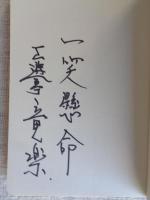 一笑懸命
三遊亭竜樂